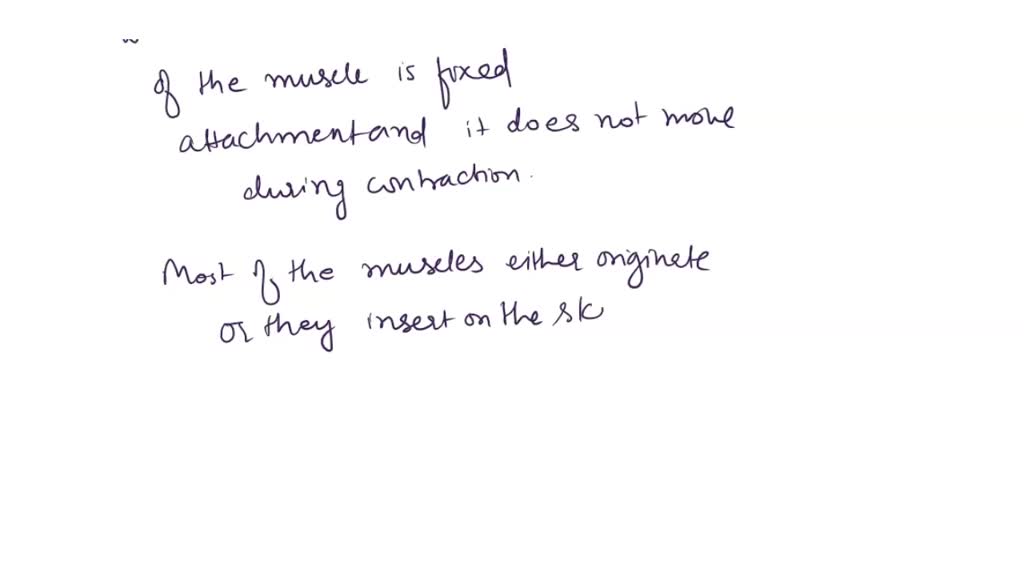 of the muscle is fixed
attachment and it does not move
during contraction.
Most of the muscles either originate
or they insert on the sk